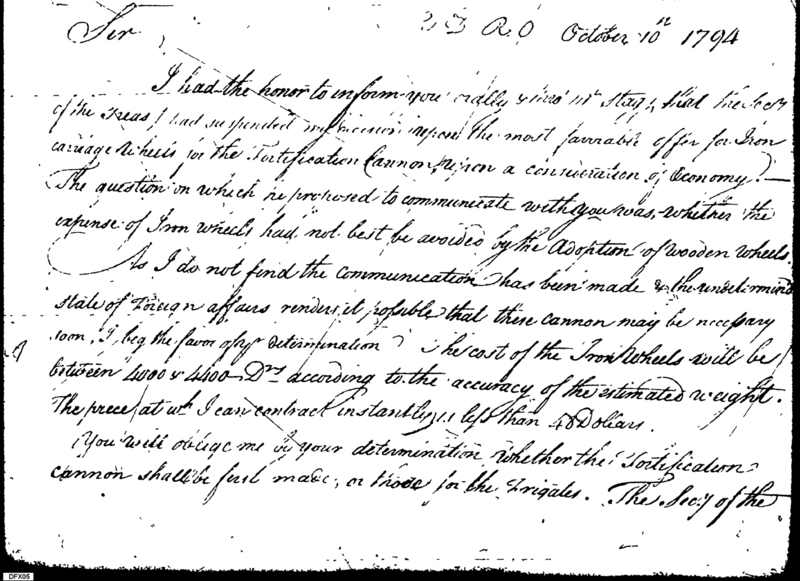 R O October 10th 1794
Sir
I had the honor to inform you orally & thro' Mr Stagg, that the Secy
of the Treasy had suspended his decision upon the most favorable offer for Iron
carriage Wheels for the Fortification Cannon, upon a consideration of Economy.
The question on which he proposed to communicate with you was, whether the
expense of Iron wheels had not best be avoided by the Adoption of wooden wheels.
As I do not find the communication has been made & the undetermined
state of Foreign affairs renders it possible that these cannon may be necessary
soon, I beg the favor of yr determination. The cost of the Iron Wheels will be
between 4000 & 4400 Drs according to the accuracy of the estimated weight.
The prece at wh I can contract instantly is less than 48 Dollars.
You will oblige me by your determination whether the Fortification
cannon shall be first made, or those for the Frigates. The Secy of the
DFX05